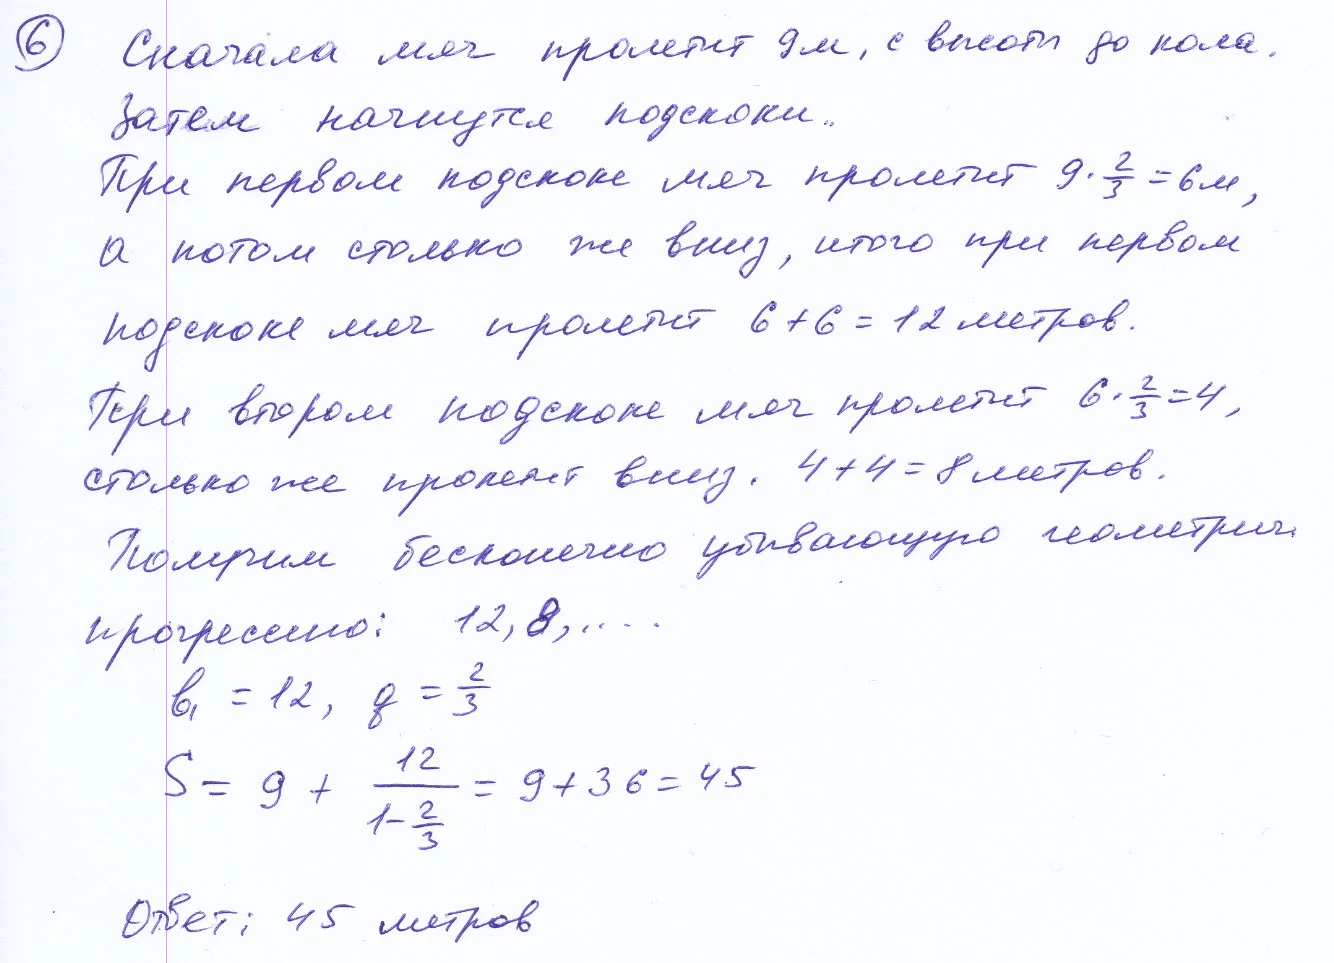 6 Сначала мяч пролетит 9м, с высоты до пола.
Затем начнутся подскоки..
При первом подскоке мяч пролетит 9·2/3=6м,
а потом столько же вниз, итого при первом
подскоке мяч пролетит 6+6=12 метров.
При втором подскоке мяч пролетит 6·2/3=4,
столько же пролетит вниз. 4+4=8 метров.
Получим бесконечно убывающую геометрич.
прогрессию: 12, 8, ....
b₁ = 12, q = 2/3
S = 9 + 12/(1-2/3) = 9+36=45
Ответ: 45 метров